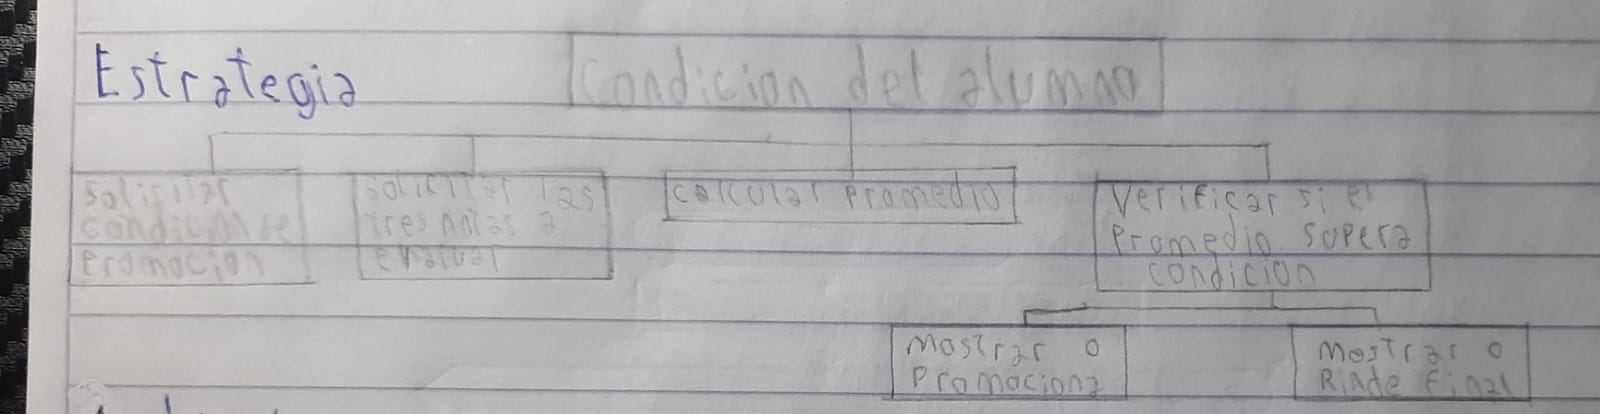 Estrategia
Condicion del alumno
Solicitar
condicion de
Promocion
Solicitar las
tres notas a
evaluar
calcular Promedio
Verificar si el
Promedio supera
condicion
Mostrar o
Promociona
Mostrar o
Rinde Final